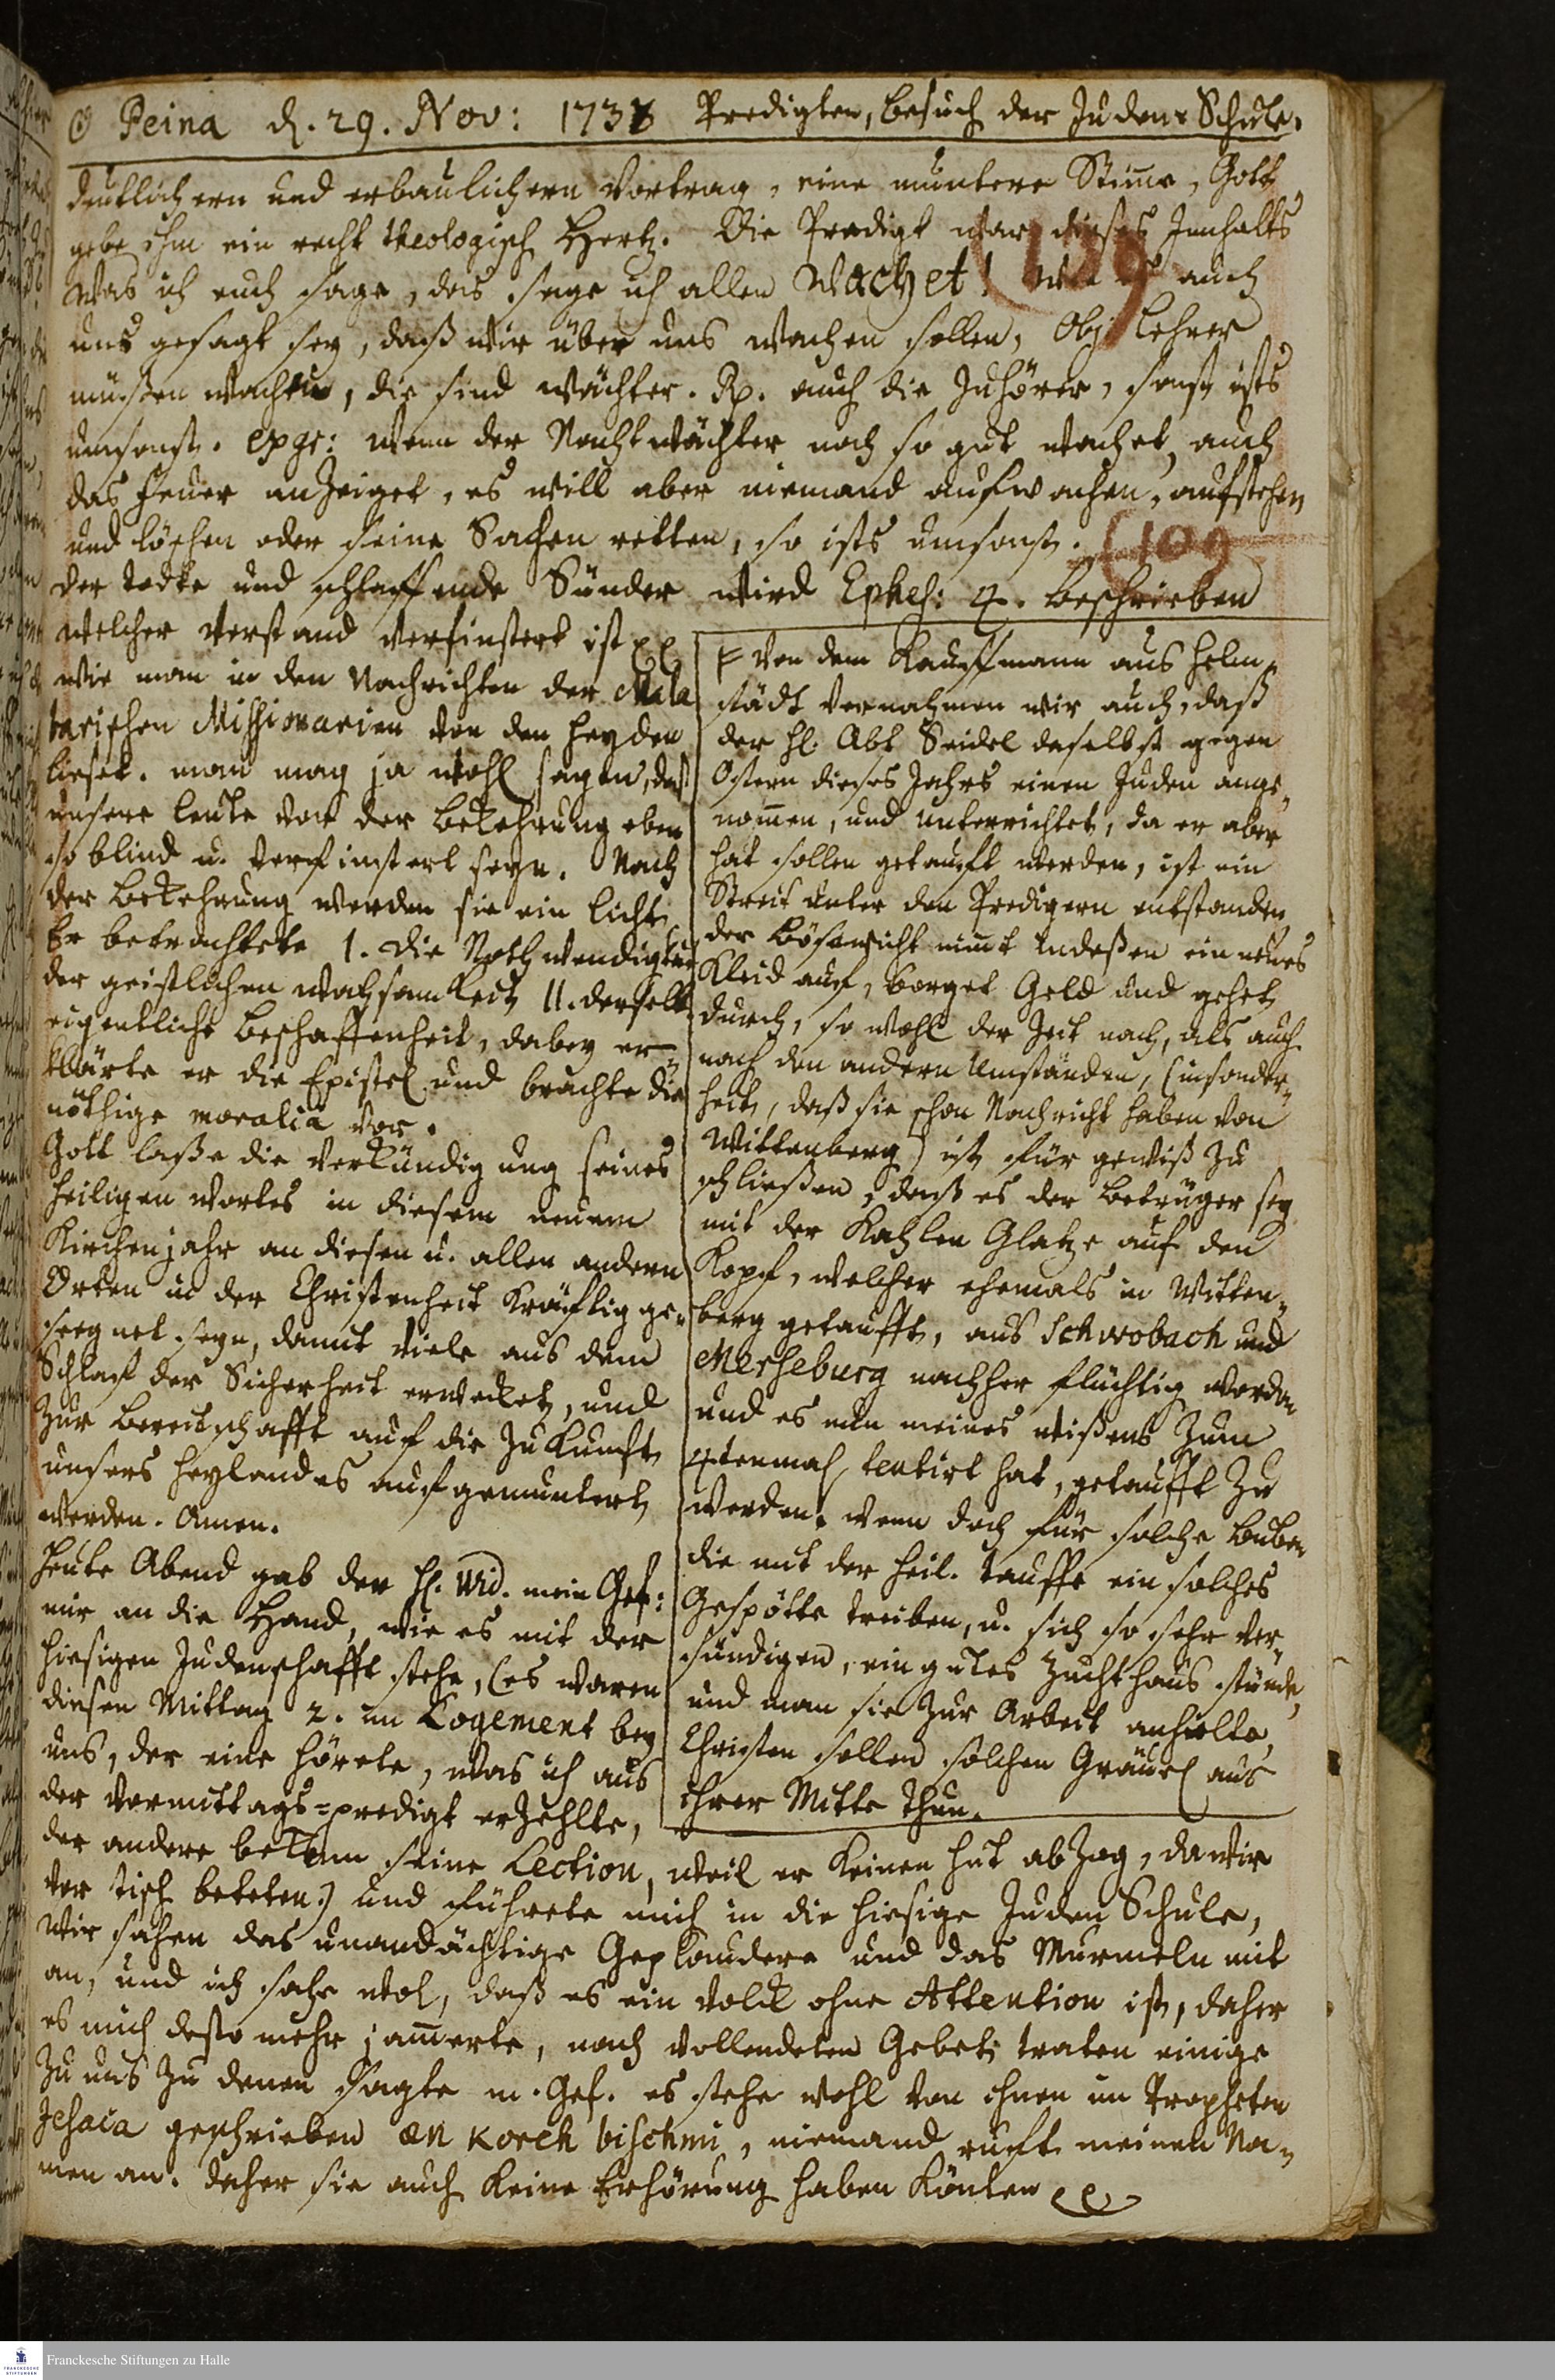 ☉ Peina d. 29. Nov: 1738 Predigten, besuch der Juden-Schule.
deutlichern und erbaulichern Vortrag, eine muntere Stimme, Gott
gebe ihm ein recht theologisch Hertz. Die Predigt war dieses Innhalts
Was ich euch sage, das sage ich allen Wachet! auch
uns gesagt sey, daß wir über uns wachen sollen, Obj. Lehrer
müßen wachen, die sind Wächter. Rp. auch die Zuhörer, sonst ists
umsonst. exgr: wenn der Nachtwächter noch so gut wachet, auch
das Feuer anzeiget, es will aber niemand aufwachen, aufstehen
und löschen oder seine Sachen retten, so ists umsonst. (109
der todte und schlaffende Sünder wird Ephes: 4. beschrieben
welcher Verstand verfinstert ist
wie man in den Nachrichten der Mala
barischen Missionarien von den Heyden
lieset. man mag ja wohl sagen, daß
unsere Leute vor der Bekehrung eben
so blind u. verfinstert seyn. Nach
der Bekehrung werden sie ein Licht
Er betrachtete 1. die Nothwendigkeit
der geistlichen Wachsamkeit II. derselb.
eigentliche Beschaffenheit, dabey er-
klärte er die Epistel und brachte die
nöthige moralia vor.
Gott laße die Verkündigung seines
heiligen Wortes in diesem neuem
Kirchenjahr an diesen u. allen andern
Orten in der Christenheit kräftig ge-
seegnet seyn, damit viele aus dem
Schlaf der Sicherheit erwecket, und
zur bereitschafft auf die Zukunft
unsers Heylandes aufgemuntert
werden. Amen.
Heute Abend gab der H. Wid. mein Gef:
mir an die Hand, wie es mit der
hiesigen Judenschafft stehe, (es waren
diesen Mittag 2. im Logement bey
uns, der eine hörete, was ich aus
der Vormittags-predigt erzehlte,
von dem Kauffmann aus Helm-
städt vernahmen wir auch, daß
der H. Abt Seidel daselbst gegen
Ostern dieses Jahrs einen Juden ange-
nommen, und unterrichtet, da er aber
hat sollen getaufft werden, ist ein
Streit unter den Predigern entstanden
der Bösewicht nimt indeßen ein neues
Kleid auf, borget Geld und gehet
durch, so wohl der Zeit nach, als auch
nach den andern Umständen, (insonder-
heit, daß sie schon Nachricht haben von
Wittenberg) ist für gewiß zu
schließen, daß es der Betrüger sey
mit der Kahlen Glatze auf den
Kopf, welcher ehemals in Witten-
berg getaufft, aus Schwobach und
Merseburg nachher flüchtig worden
und es nun meines wißens zum
4tenmal tentirt hat, getaufft zu
werden. wenn doch für solche Buben
die mit der heil. Tauffe ein solches
Gespötte treiben, u. sich so sehr ver-
sündigen, ein gutes Zuchthaus stünde,
und man sie zur Arbeit anhielte,
Christen sollen solchen Gräuel aus
ihrer Mitte thun.
der andere bekam seine Lection, weil er keinen Hut abzog, da wir
vor Tisch beteten) und führete mich in die hiesige Juden Schule,
wir sahen das unandächtige Geplaudere und das Murmeln mit
an, und ich sahe wol, daß es ein Volck ohne Attention ist, daher
es mich desto mehr jammerte, nach vollendeten Gebet traten einige
zu uns zu denen sagte m. Gef. es stehe wohl von ihnen im Propheten
Jesaia geschrieben en koreh bischmi, niemand ruft meinen Na-
men an. daher sie auch keine Erhörung haben könten
Franckesche Stiftungen zu Halle